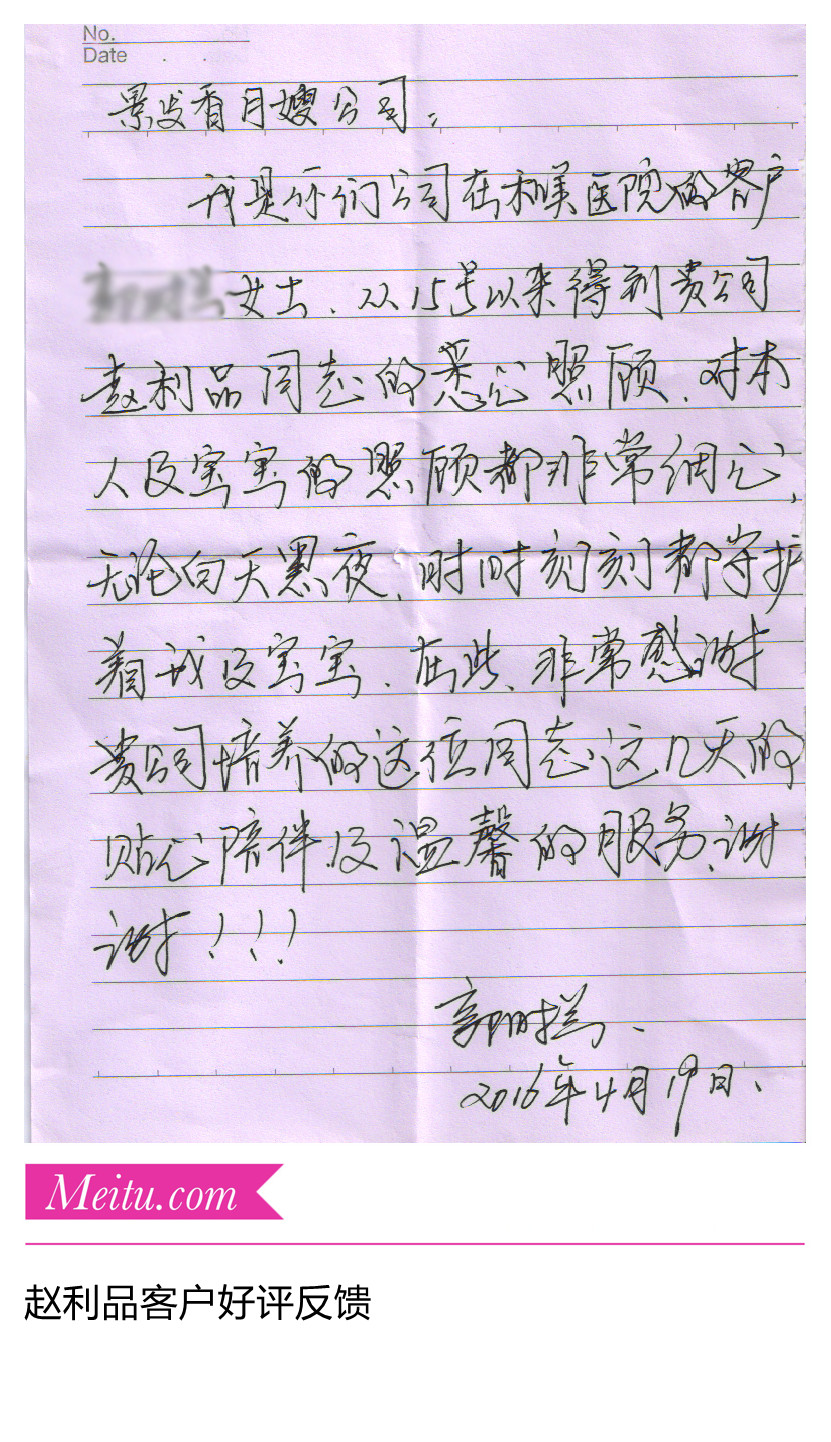 No.
Date
景发香月嫂公司：
我是你们公司在和美医院的客户
女士、从15号以来得到贵公司
赵利品同志的悉心照顾、对本
人及宝宝的照顾都非常细心,
无论白天黑夜、时时刻刻都守护
着我及宝宝、在此、非常感谢
贵公司培养的这位同志这几天的
贴心陪伴及温馨的服务、谢
谢！！！
2016年4月19日、
Meitu.com
赵利品客户好评反馈